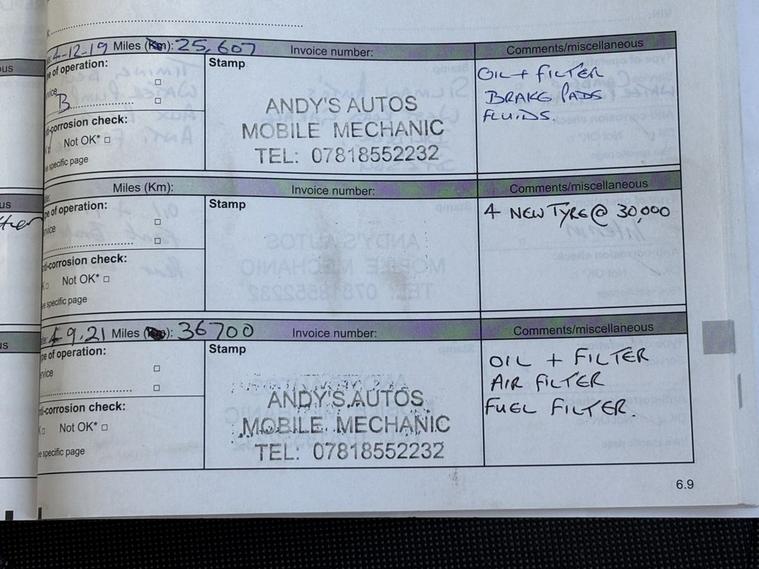 4-12-19 Miles (Km): 25,607 Invoice number: Comments/miscellaneous
e of operation:
Stamp
OIL + FILTER
BRAKE PADS
FLUIDS.
vice
B
ANDY'S AUTOS
MOBILE MECHANIC
TEL: 07818552232
ti-corrosion check:
Not OK* □
e specific page
Miles (Km): Invoice number: Comments/miscellaneous
e of operation:
Stamp
4 NEW TYRE @ 30,000
vice
ti-corrosion check:
Not OK* □
e specific page
9.21 Miles (Km): 36700 Invoice number: Comments/miscellaneous
e of operation:
Stamp
OIL + FILTER
AIR FILTER
FUEL FILTER.
vice
ANDY'S AUTOS
MOBILE MECHANIC
TEL: 07818552232
ti-corrosion check:
Not OK* □
e specific page
6.9